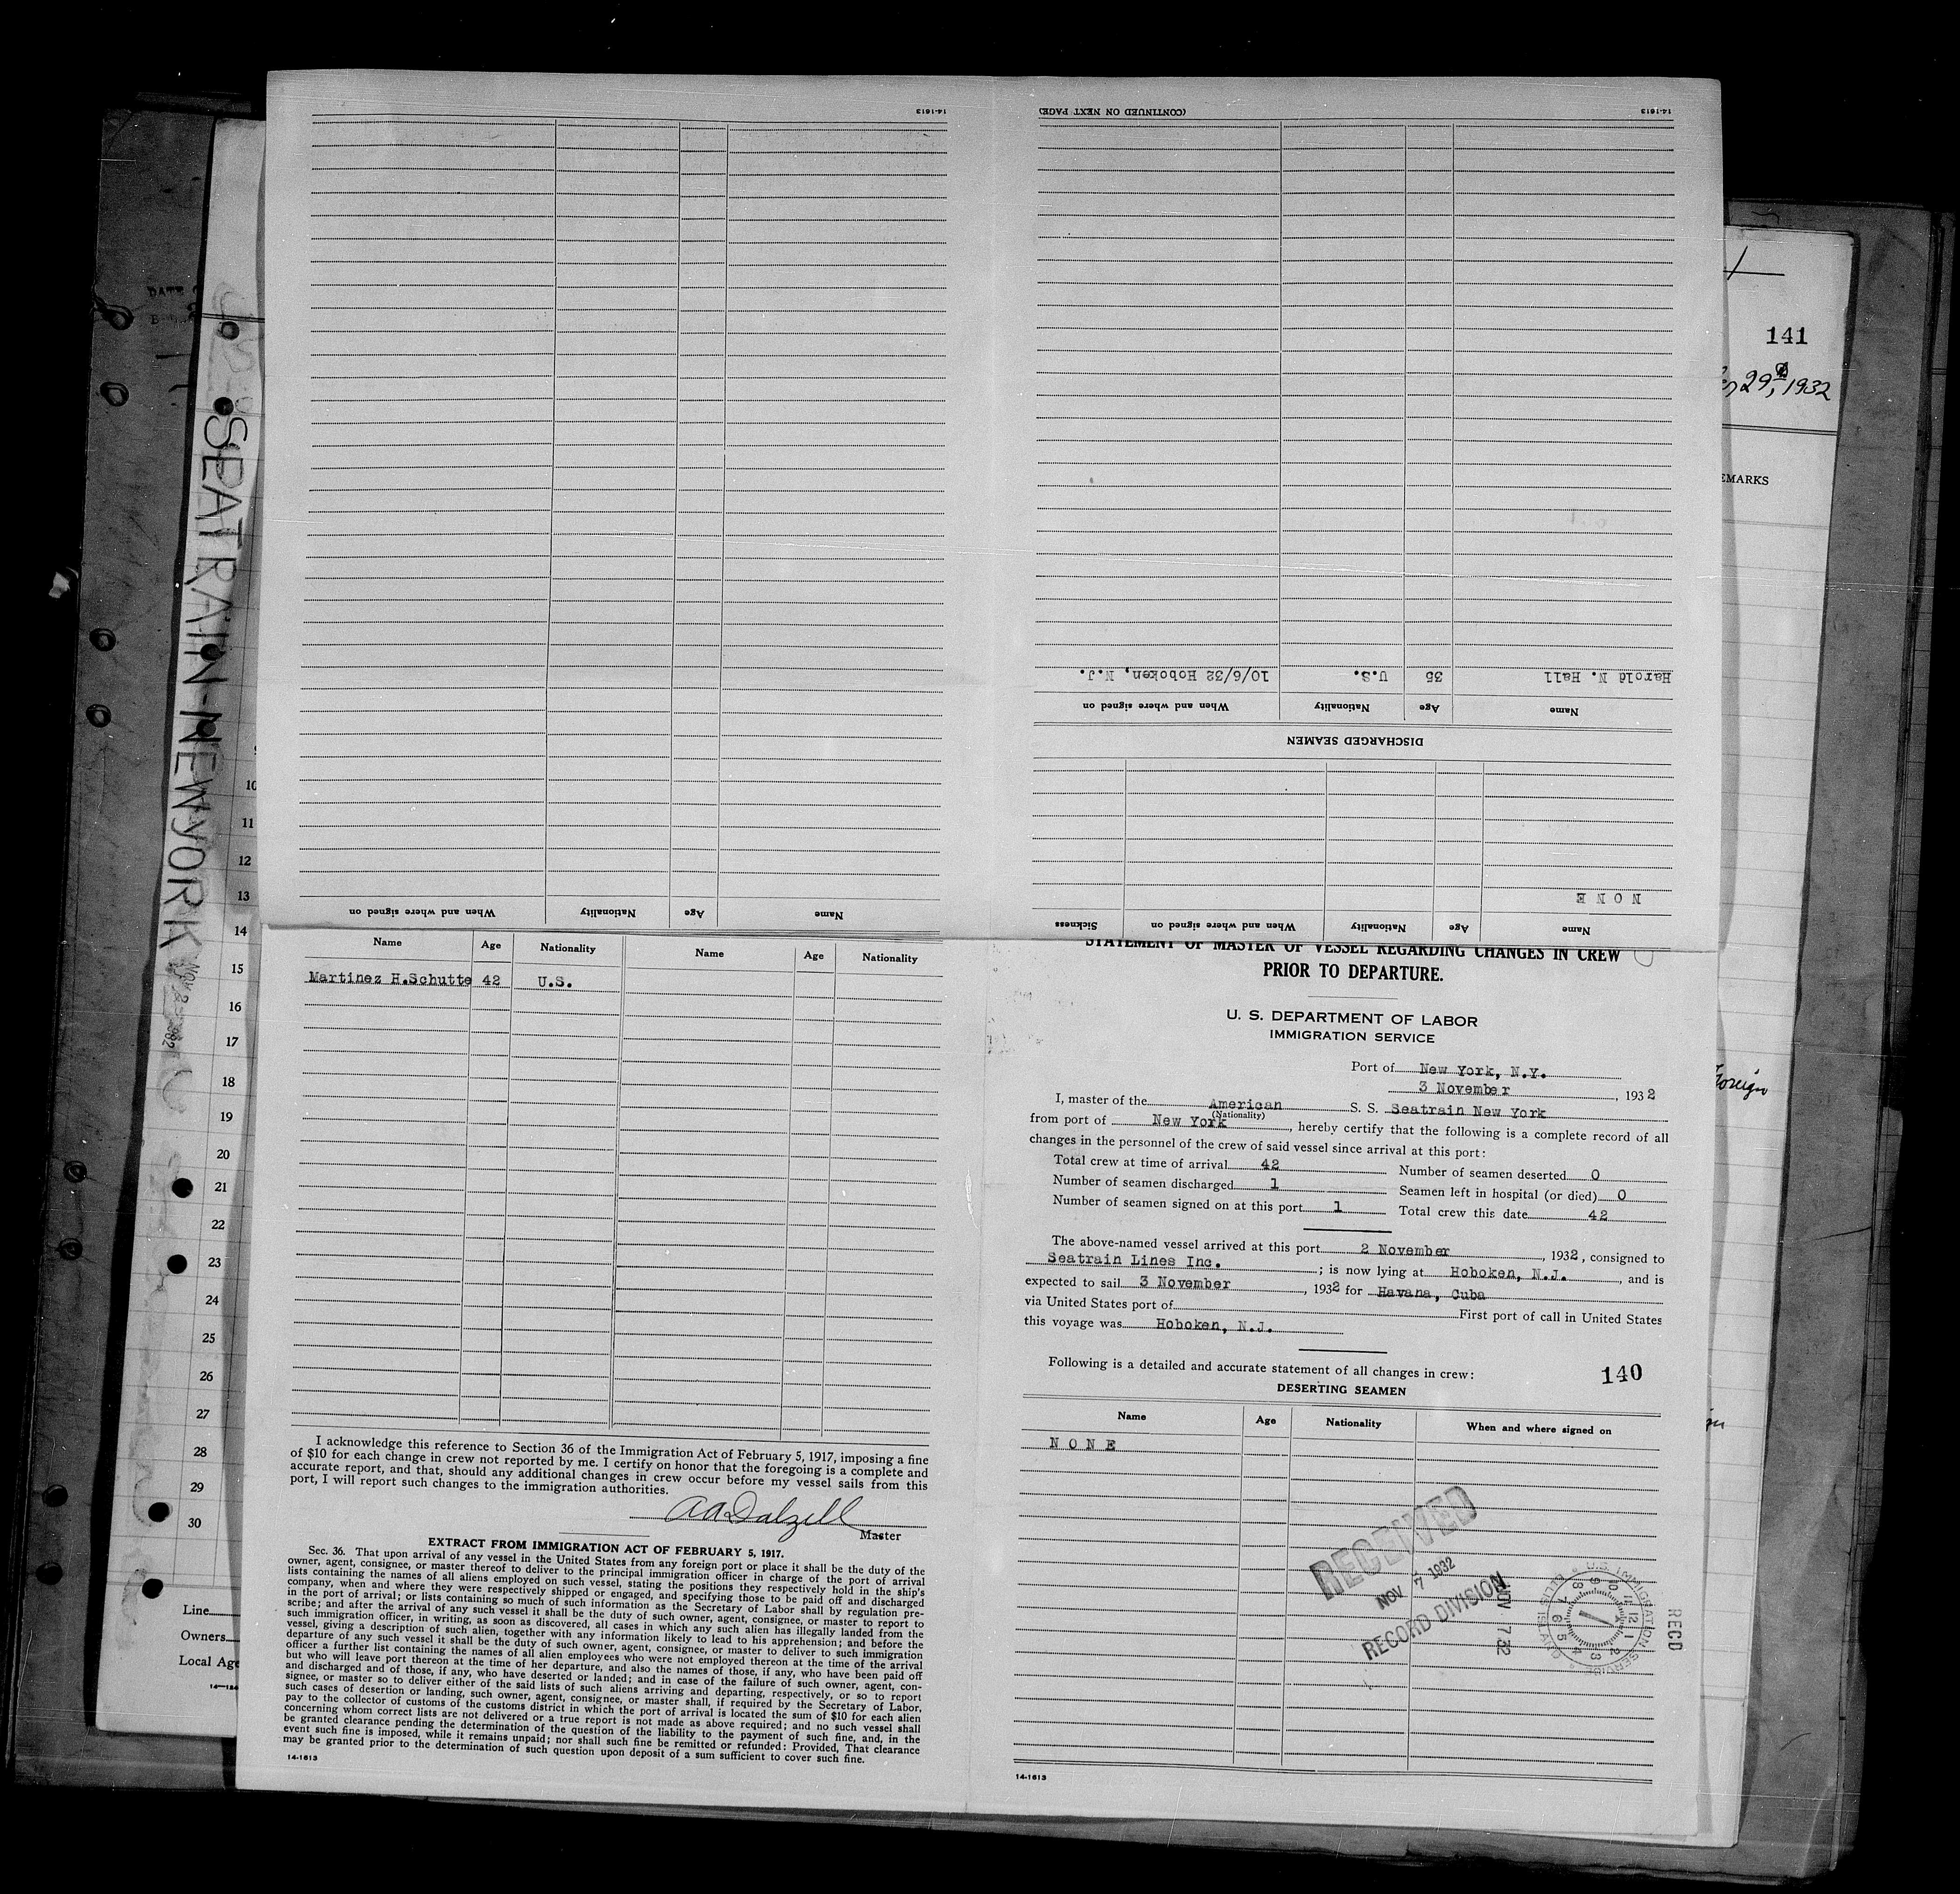 14-1613
(CONTINUED ON NEXT PAGE)
14-1613
Harold N. Hall 35 U.S. 10/6/32 Hoboken, N.J.
Name Age Nationality When and where signed on
DISCHARGED SEAMEN
NONE
Name Age Nationality When and where signed on Sickness
Name Age Nationality When and where signed on
Name Age Nationality Name Age Nationality
Martinez H.Schutte 42 U.S.
I acknowledge this reference to Section 36 of the Immigration Act of February 5, 1917, imposing a fine
of $10 for each change in crew not reported by me. I certify on honor that the foregoing is a complete and
accurate report, and that, should any additional changes in crew occur before my vessel sails from this
port, I will report such changes to the immigration authorities.
AADalzell
Master
EXTRACT FROM IMMIGRATION ACT OF FEBRUARY 5, 1917.
Sec. 36. That upon arrival of any vessel in the United States from any foreign port or place it shall be the duty of the
owner, agent, consignee, or master thereof to deliver to the principal immigration officer in charge of the port of arrival
lists containing the names of all aliens employed on such vessel, stating the positions they respectively hold in the ship's
company, when and where they were respectively shipped or engaged, and specifying those to be paid off and discharged
in the port of arrival; or lists containing so much of such information as the Secretary of Labor shall by regulation pre-
scribe; and after the arrival of any such vessel it shall be the duty of such owner, agent, consignee, or master to report to
such immigration officer, in writing, as soon as discovered, all cases in which any such alien has illegally landed from the
vessel, giving a description of such alien, together with any information likely to lead to his apprehension; and before the
departure of any such vessel it shall be the duty of such owner, agent, consignee, or master to deliver to such immigration
officer a further list containing the names of all alien employees who were not employed thereon at the time of the arrival
but who will leave port thereon at the time of her departure, and also the names of those, if any, who have been paid off
and discharged and of those, if any, who have deserted or landed; and in case of the failure of such owner, agent, con-
signee, or master so to deliver either of the said lists of such aliens arriving and departing, respectively, or so to report
such cases of desertion or landing, such owner, agent, consignee, or master shall, if required by the Secretary of Labor,
pay to the collector of customs of the customs district in which the port of arrival is located the sum of $10 for each alien
concerning whom correct lists are not delivered or a true report is not made as above required; and no such vessel shall
be granted clearance pending the determination of the question of the liability to the payment of such fine, and, in the
event such fine is imposed, while it remains unpaid; nor shall such fine be remitted or refunded: Provided, That clearance
may be granted prior to the determination of such question upon deposit of a sum sufficient to cover such fine.
14-1613
STATEMENT OF MASTER OF VESSEL REGARDING CHANGES IN CREW
PRIOR TO DEPARTURE.
U. S. DEPARTMENT OF LABOR
IMMIGRATION SERVICE
Port of New York, N.Y.
3 November, 1932
I, master of the American S. S. Seatrain New York
(Nationality)
from port of New York, hereby certify that the following is a complete record of all
changes in the personnel of the crew of said vessel since arrival at this port:
Total crew at time of arrival 42 Number of seamen deserted 0
Number of seamen discharged 1 Seamen left in hospital (or died) 0
Number of seamen signed on at this port 1 Total crew this date 42
The above-named vessel arrived at this port 2 November, 1932, consigned to
Seatrain Lines Inc.; is now lying at Hoboken, N.J., and is
expected to sail 3 November, 1932 for Havana, Cuba
via United States port of First port of call in United States
this voyage was Hoboken, N.J.
Following is a detailed and accurate statement of all changes in crew:
140
DESERTING SEAMEN
Name Age Nationality When and where signed on
NONE
RECEIVED
NOV 7 1932
RECORD DIVISION
NOV 7 32
U.S. IMMIGRATION SERVICE ELLIS ISLAND
RECD
14-1613
SEATRAIN-NEWYORK
NOV 2 1932
10
11
12
13
14
15
16
17
18
19
20
21
22
23
24
25
26
27
28
29
30
Line
Owners
Local Age
141
29, 1932
EMARKS
Foreign